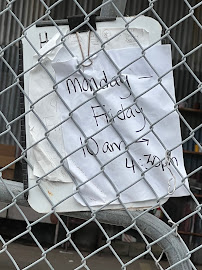 4
Monday -
Friday
10am →
4:30pm